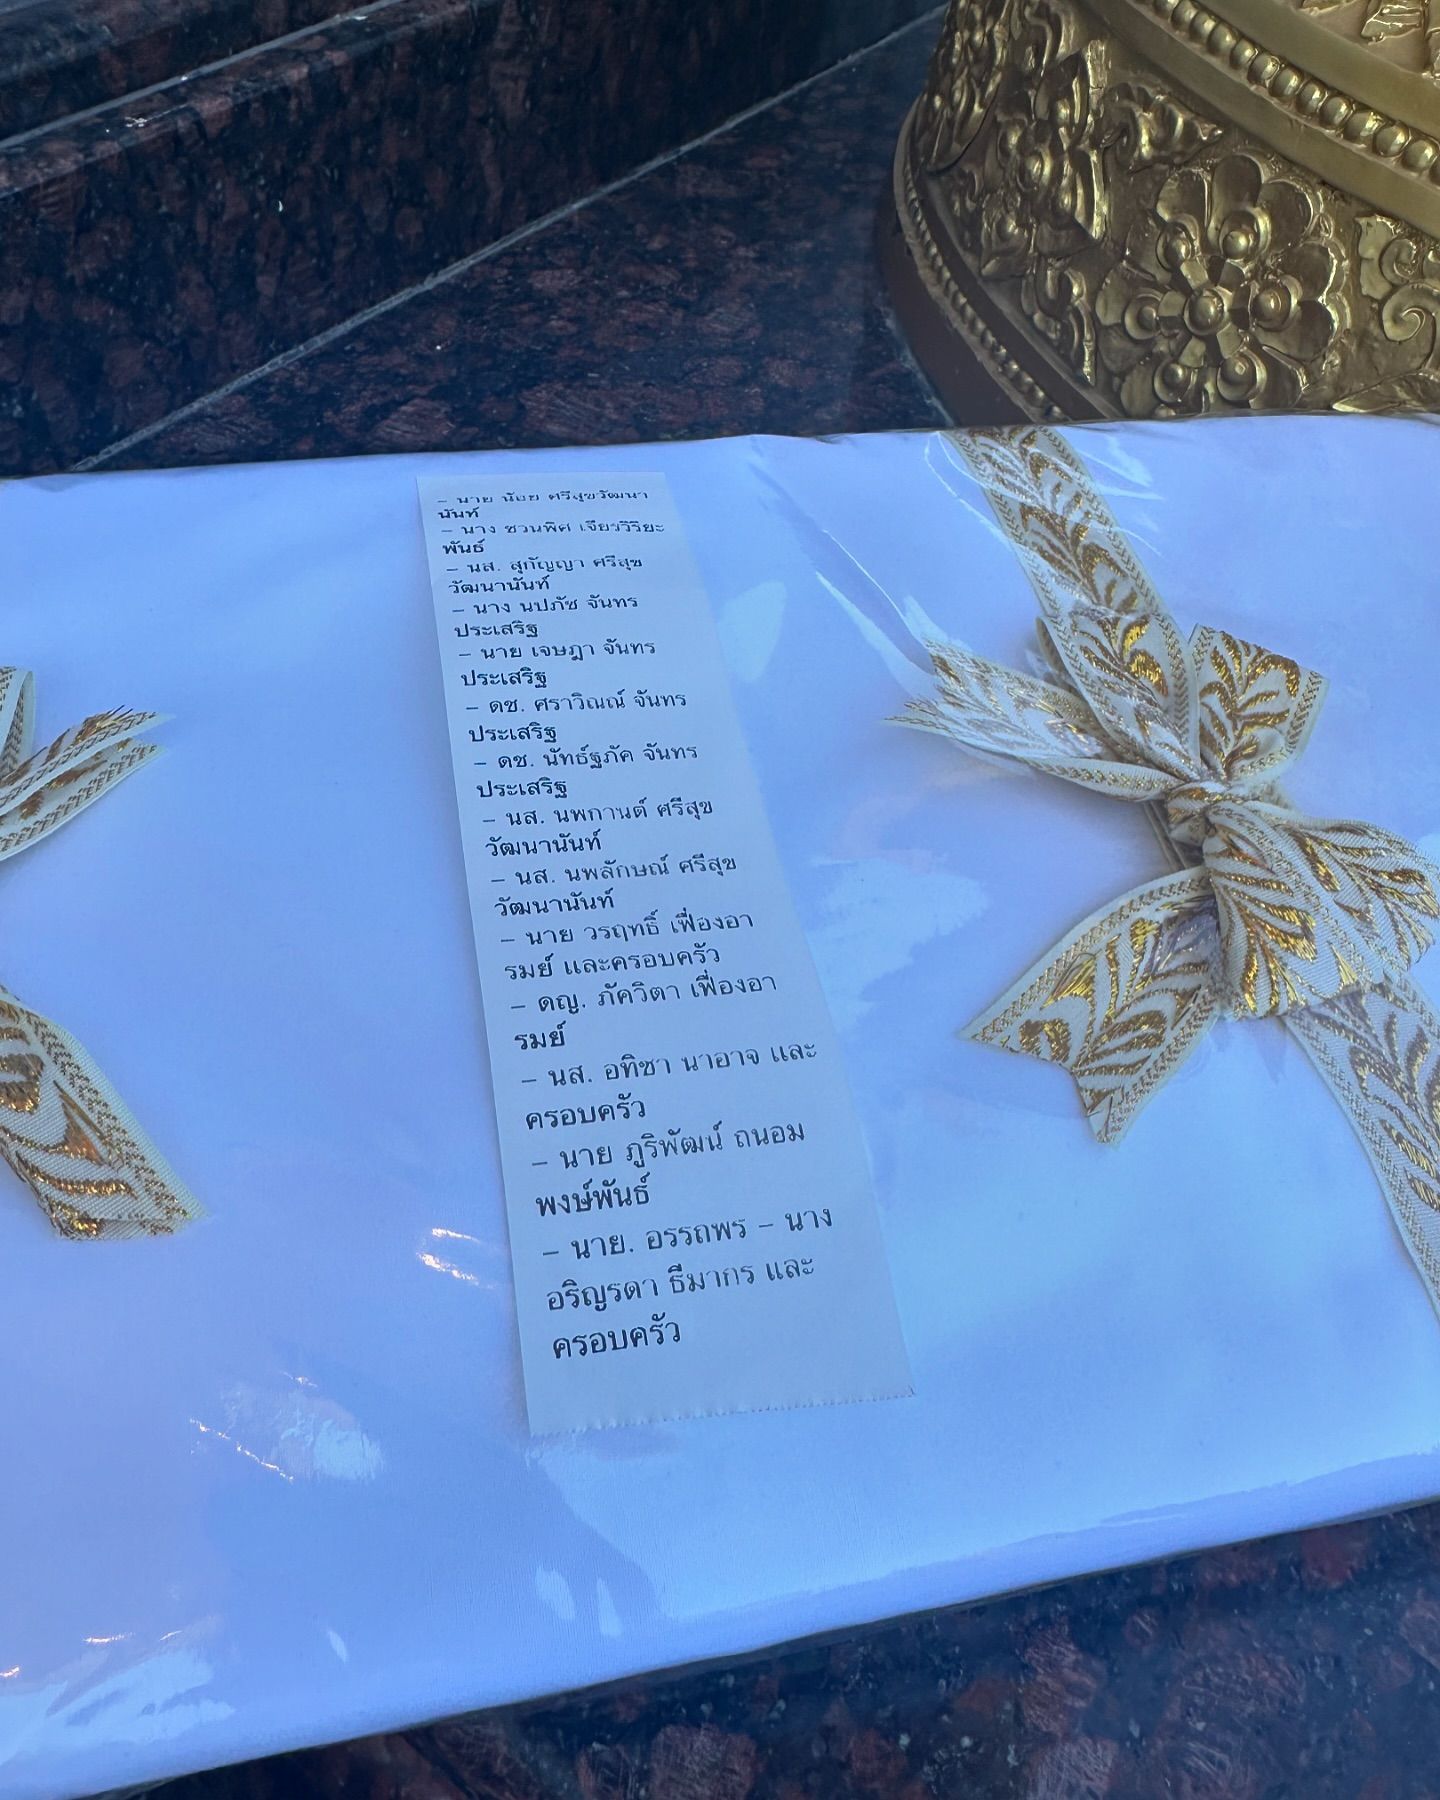 – นาย น้อย ศรีสุขวัฒนา
นันท์
– นาง ชวนพิศ เจียรวิริยะ
พันธ์
– นส. สุกัญญา ศรีสุข
วัฒนานันท์
– นาง นปภัช จันทร
ประเสริฐ
– นาย เจษฎา จันทร
ประเสริฐ
– ดช. ศราวิณณ์ จันทร
ประเสริฐ
– ดช. นัทธ์ฐภัค จันทร
ประเสริฐ
– นส. นพกานต์ ศรีสุข
วัฒนานันท์
– นส. นพลักษณ์ ศรีสุข
วัฒนานันท์
– นาย วรฤทธิ์ เฟื่องอา
รมย์ และครอบครัว
– ดญ. ภัควิตา เฟื่องอา
รมย์
– นส. อทิชา นาอาจ และ
ครอบครัว
– นาย ภูริพัฒน์ ถนอม
พงษ์พันธ์
– นาย. อรรถพร – นาง
อริญรดา ธีมากร และ
ครอบครัว